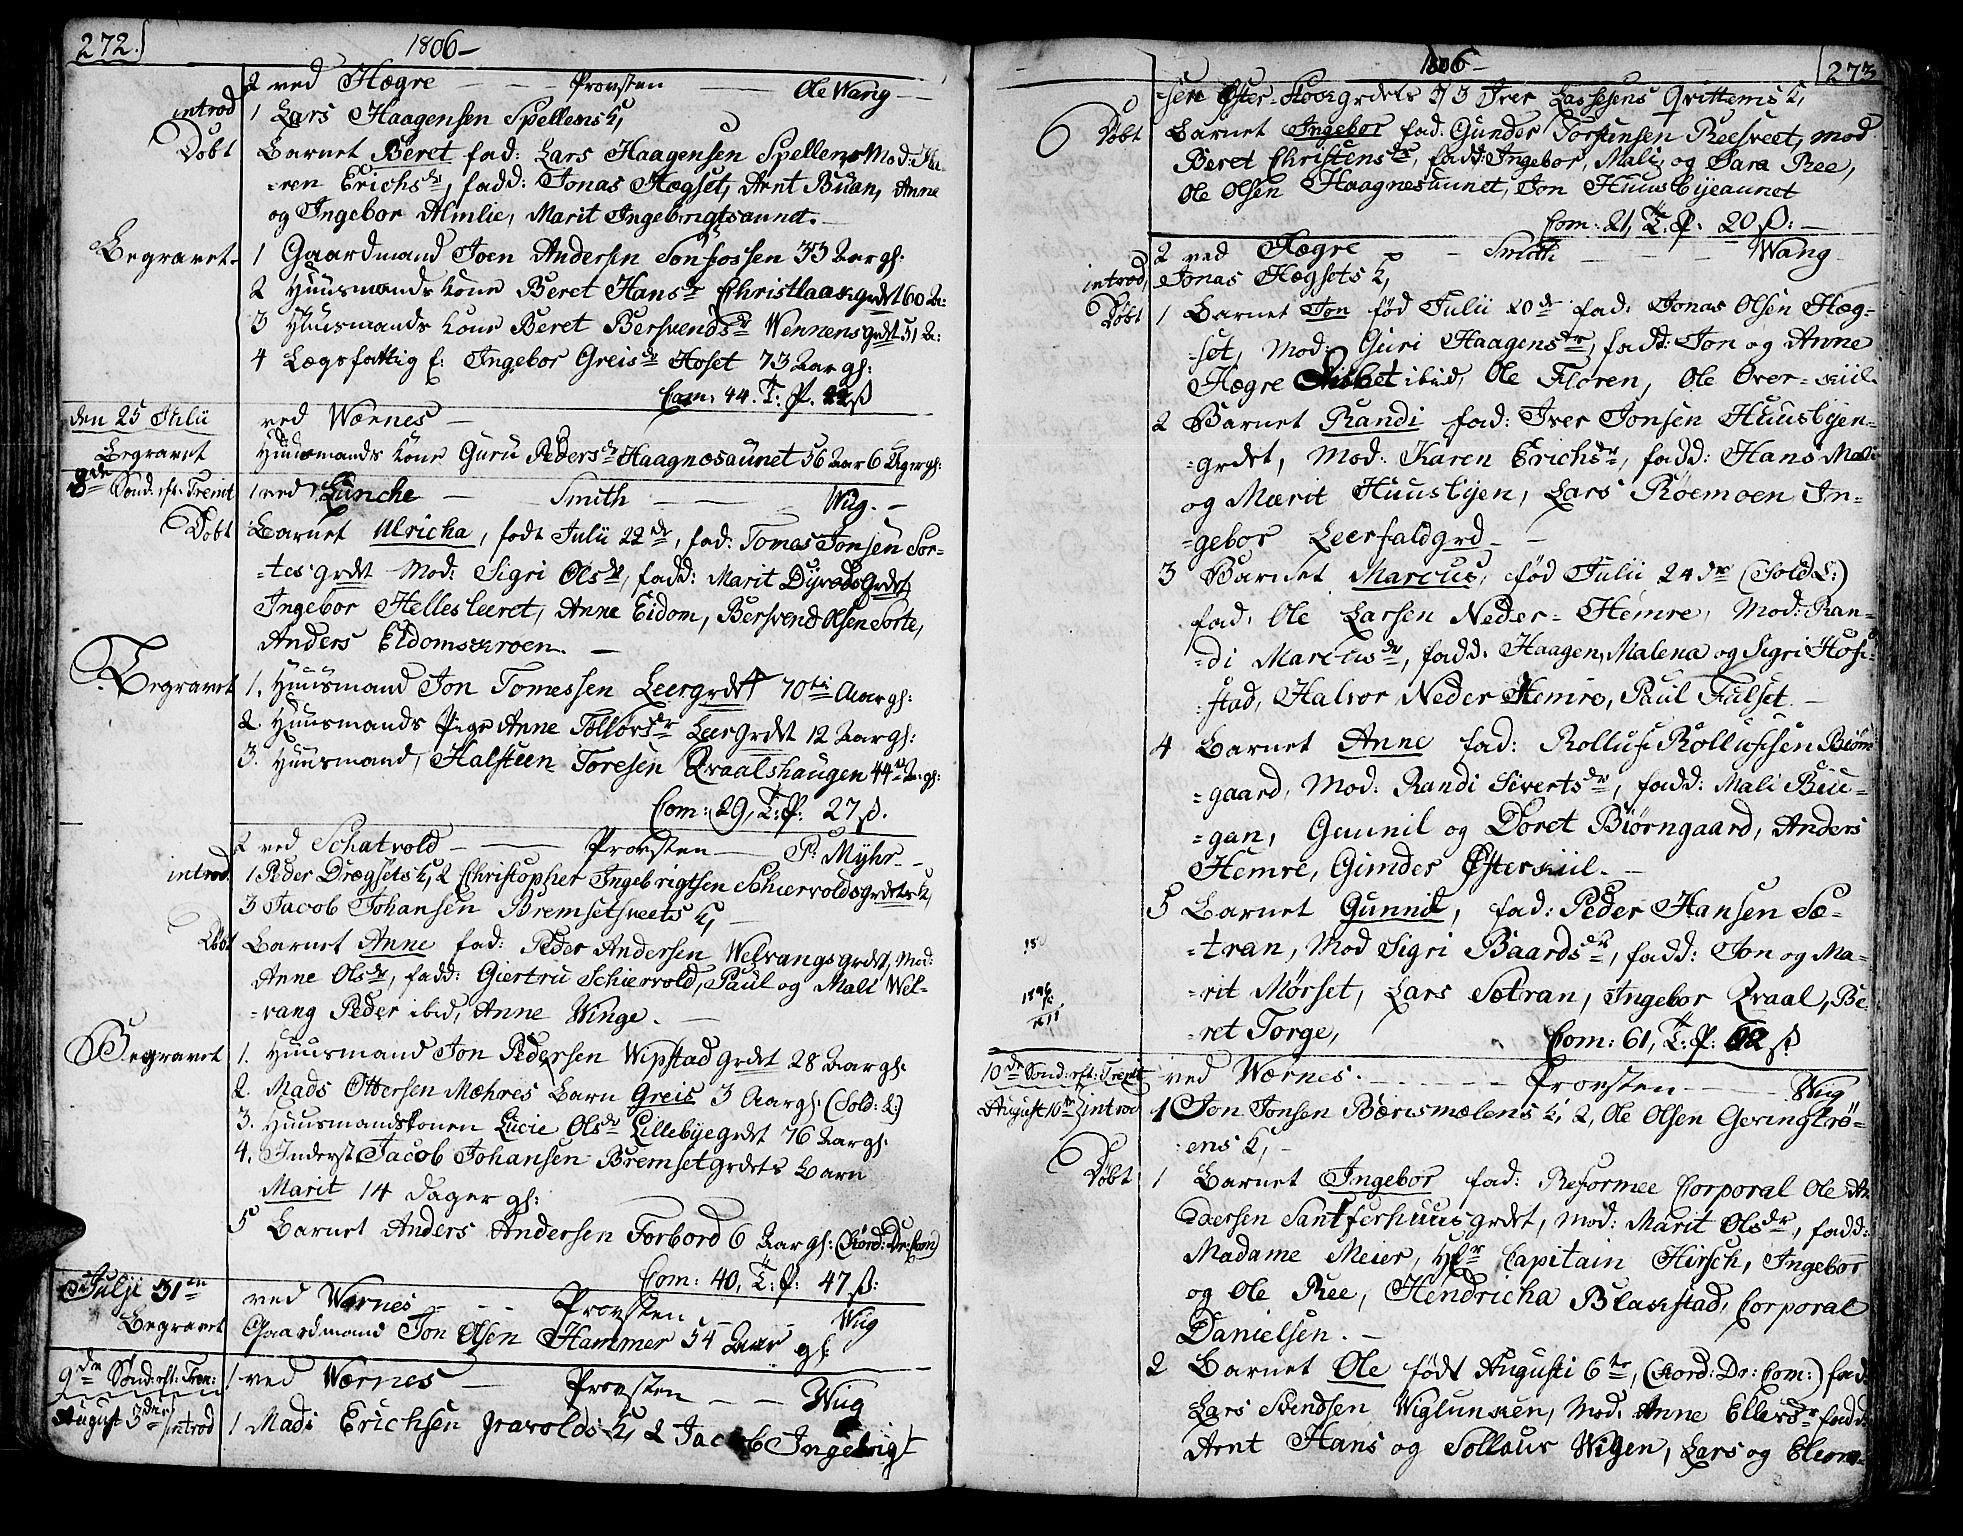 272.
1806-
2 ved Hegre - - - Provsten - Ole Wang -
introd 1 Lars Haagensen Spellens K,
Døbt Barnet Beret fad: Lars Haagensen Spellens Mod: Ka-
=ren Erichsdr, fadd: Jonas Hegset, Arnt Buan, Anne
og Ingebor Almlie, Marit Ingebrigtsaunet.-
Begravet- 1 Gaardmand Joen Andersen Sonfossen 33 Aar gl:
2 Huusmands kone Beret Hansdr Christlaasgrdet 60 A:
3 Huusmands kone Beret Bersvendsdr Wennensgrdet 51 A:
4 Lægsfattig E: Ingebor Greisdr Hoset 73 Aar gl:
Com: 44. T: P. 22ß
den 25 Julii ved Wærnes -
Begravet Huusmands kone Guru Pedersdr Haagnesaunet 56 Aar 6 Uger gl:
8de Sond: eft: Trenit 1 ved Lunche - Smith - - Wug. -
Døbt Barnet Ulricha, født Julii 22de, fad: Tomas Jonsen Sor-
=tesgrdet Mod: Sigri Olsdr, fadd: Marit Dyvadsgrdet
Ingebor Hellesleeret, Anne Eidom, Bersvend Olsen Sorte,
Anders Eldomskroen. -
Begravet 1. Huusmand Jon Tomessen Leergrdet 70ti Aar gl:
2. Huusmands Pige Anne Tollørsdr Leergrdet 12 Aar gl:
3. Huusmand, Halsteen Toresen Qvaalshaugen 44 A: gl:
Com: 29, T: P. 27 ß.
2 ved Schatvold - - Provsten - P: Myhr -
introd. 1 Peder Drægsets K, 2 Christopher Ingebrigtsen Schiervoldsgrdets K,
3 Jacob Johansen Bremsetsveets K, -
Døbt Barnet Anne fad: Peder Andersen Welvangsgrdet, Mod:
Anne Olsdr, fadd: Giertru Schiervold, Paul og Mali Wel-
=vang Peder ibid, Anne Winge. -
Begravet 1. Huusmand Jon Pedersen Wipstadgrdet 28 Aar gl:
2. Mads Ottersen Mæhres Barn Greis 3 Aar gl: (Sold: L:)
3. Huusmandskonen Lucie Olsdr Lillebyegrdet 76 Aar gl:
4. Inderst Jacob Johansen Bremsetgrdets Barn
Marit 14 dager gl:
5 Barnet Anders Andersen Forbord 6 Aar gl: (Nord: Dr: Com)
Com: 40, T: P: 47 ß:
Julii 31te ved Wærnes - - - Provsten - Wug
Begravet Gaardmand Jon Olsen Hammer 54 Aar gl:
9de Sønd: eft: Tren: 1 ved Wærnes - Provsten - - Wug
August 3die introd 1 Mads Erichsen Gravolds K, 2 Jacob Ingebrigt
1806-
273
=sen Øster-Koxegrdets K 3 Iver Lassesens Qvittems K,
6 Døbt Barnet Ingebor fad: Gunder Torstensen Reesveet, Mod
Beret Christensdr, fadd: Ingebor, Mali, og Sara Ree,
Ole Olsen Haagnesaunet, Jon Huusbyeaunet
Com: 21, T. P. 20 ß: -
2 ved Hegre - Smith - - - Wang -
introd, Jonas Hegsets K,
Døbt 1 Barnet Jon fød Julii 20de fad: Jonas Olsen Heg-
=set, Mod: Guri Haagensdr, fadd: Jon og Anne
Hegre ibid, Ole Floren, Ole Over-kiil.
2 Barnet Randi fad: Iver Jonsen Huusbyen-
=grdet, Mod. Karen Erichsdr, fadd: Hans Mali
og Marit Huusbyen, Lars Røemoen In-
=gebor Leerfaldgrd - -
3 Barnet Marcus, fød Julii 24de (Sold L:)
fad. Ole Larsen Neder-Hemre, Mod: Ran-
=di Marcusdr, fadd: Haagen, Malena og Sigri Hof-
=stad, Halvor Neder Hemre, Paul Fulset. -
4 Barnet Anne fad: Rolluf Rollufsen Biørn
=gaard, Mod: Randi Sivertsdr, fadd: Mali Buu-
=gan, Gunnil og Doret Biørngaard, Anders
Hemre, Gunder Østerkiil. -
5 Barnet Gunnil, fad: Peder Hansen Sæ-
=tran, Mod Sigri Baardsdr, fadd: Jon og Ma-
=rit Mørset, Lars Sætran, Ingebor Qvaal, Be
=ret Torge, Com: 61, T: P: 62 ß
10de Sond: eft: Trenit ved Wærnes. - - - Provsten - - Wug
August 10de introd 1 Jon Jonsen Bærismelens K, 2, Ole Olsen Geving krö-
=ens K, -
Døbt 1 Barnet Ingebor fad: Reformee Corporal Ole An
dersen Santferhuusgrdet, Mod: Marit Olsdr, fadd:
Madame Meier, Hr Capitain Hirsch, Ingebor
og Ole Ree, Hendricha Blaxstad, Corporal
Danielsen. -
2 Barnet Ole født Augusti 6te, (Nord: Dr: Com:) fad.
Lars Svendsen Wiglunsien, Mod. Anne Ellevsdr fadd:
Arnt Hans og Sollaus Wigen, Lars og Eleono-